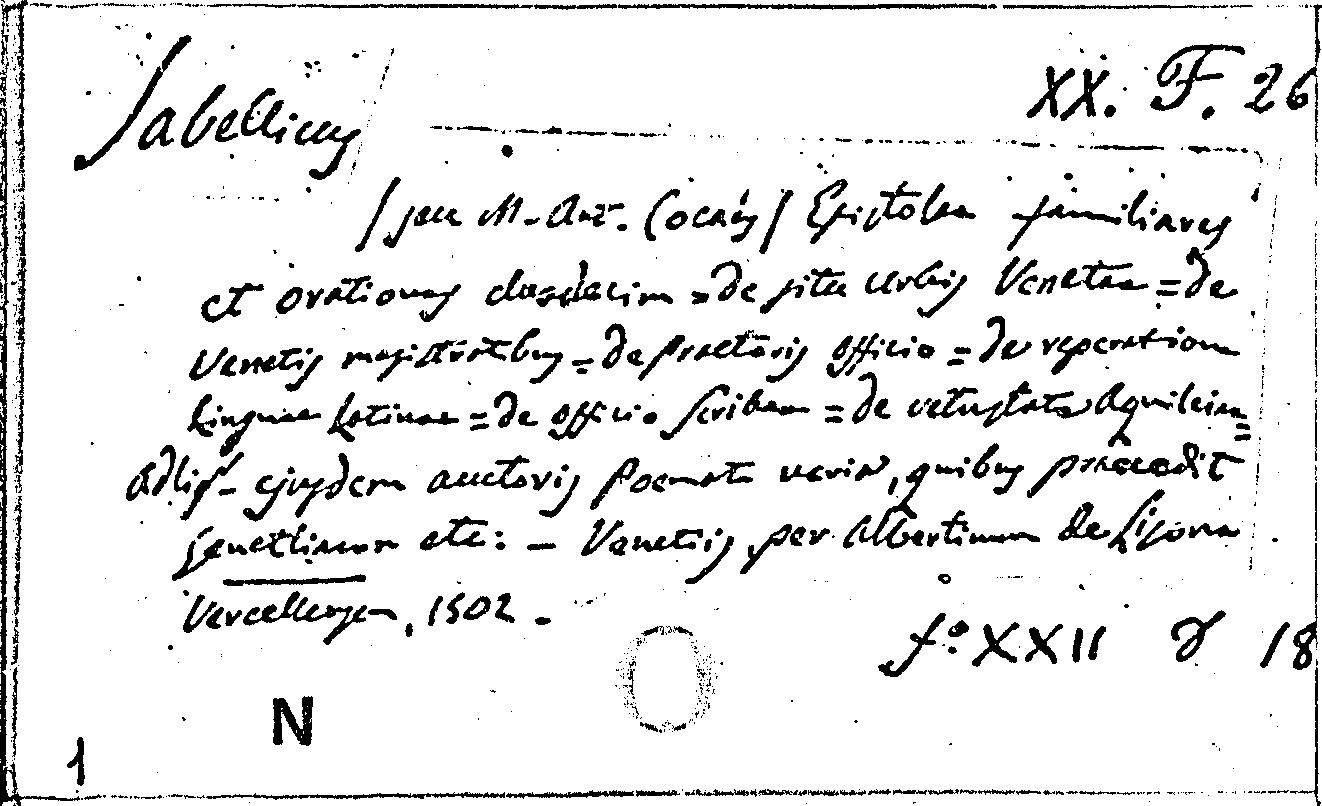 Sabellicus
XX. F. 26
/seu M. Ant. Cocaÿ/ Epistolae familiares
et orationes duodecim = De situ Urbis Venetae = De
Venetis magistratibus = De Praetoris officio = De reparatione
Linguae Latinae = De officio Scribae = De vetustate Aquileiae =
Adlis - ejusdem auctoris Poemata varia, quibus praecedit
Genethliacon etc: - Venetiis, per Albertinum de Lisona
Vercellensem, 1502.
fº XXII 18
N
1